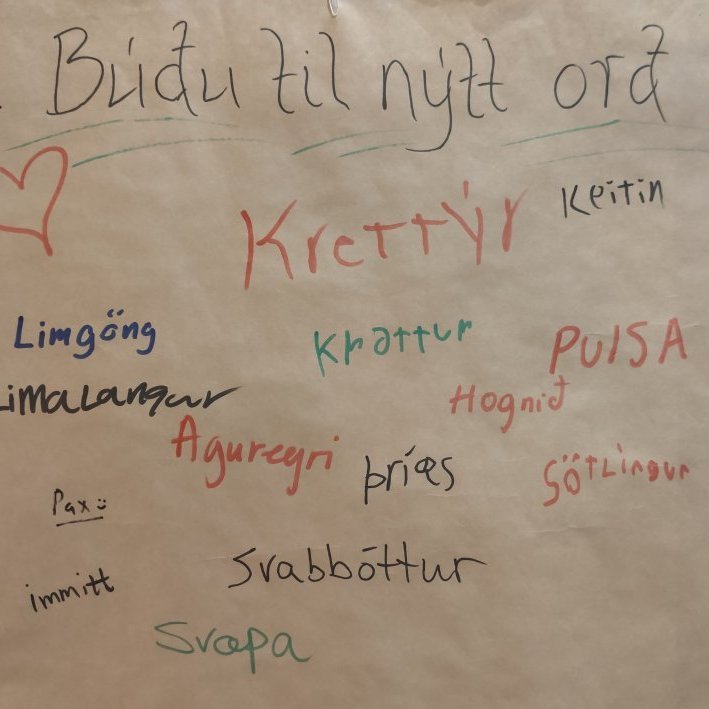 Búðu til nýtt orð
Keitin
Krettýr
Limgöng
Krattur
PULSA
Limalangur
Hognið
Aguregri
þríæs
Sötlingur
Pax
Svabbóttur
immitt
Svapa